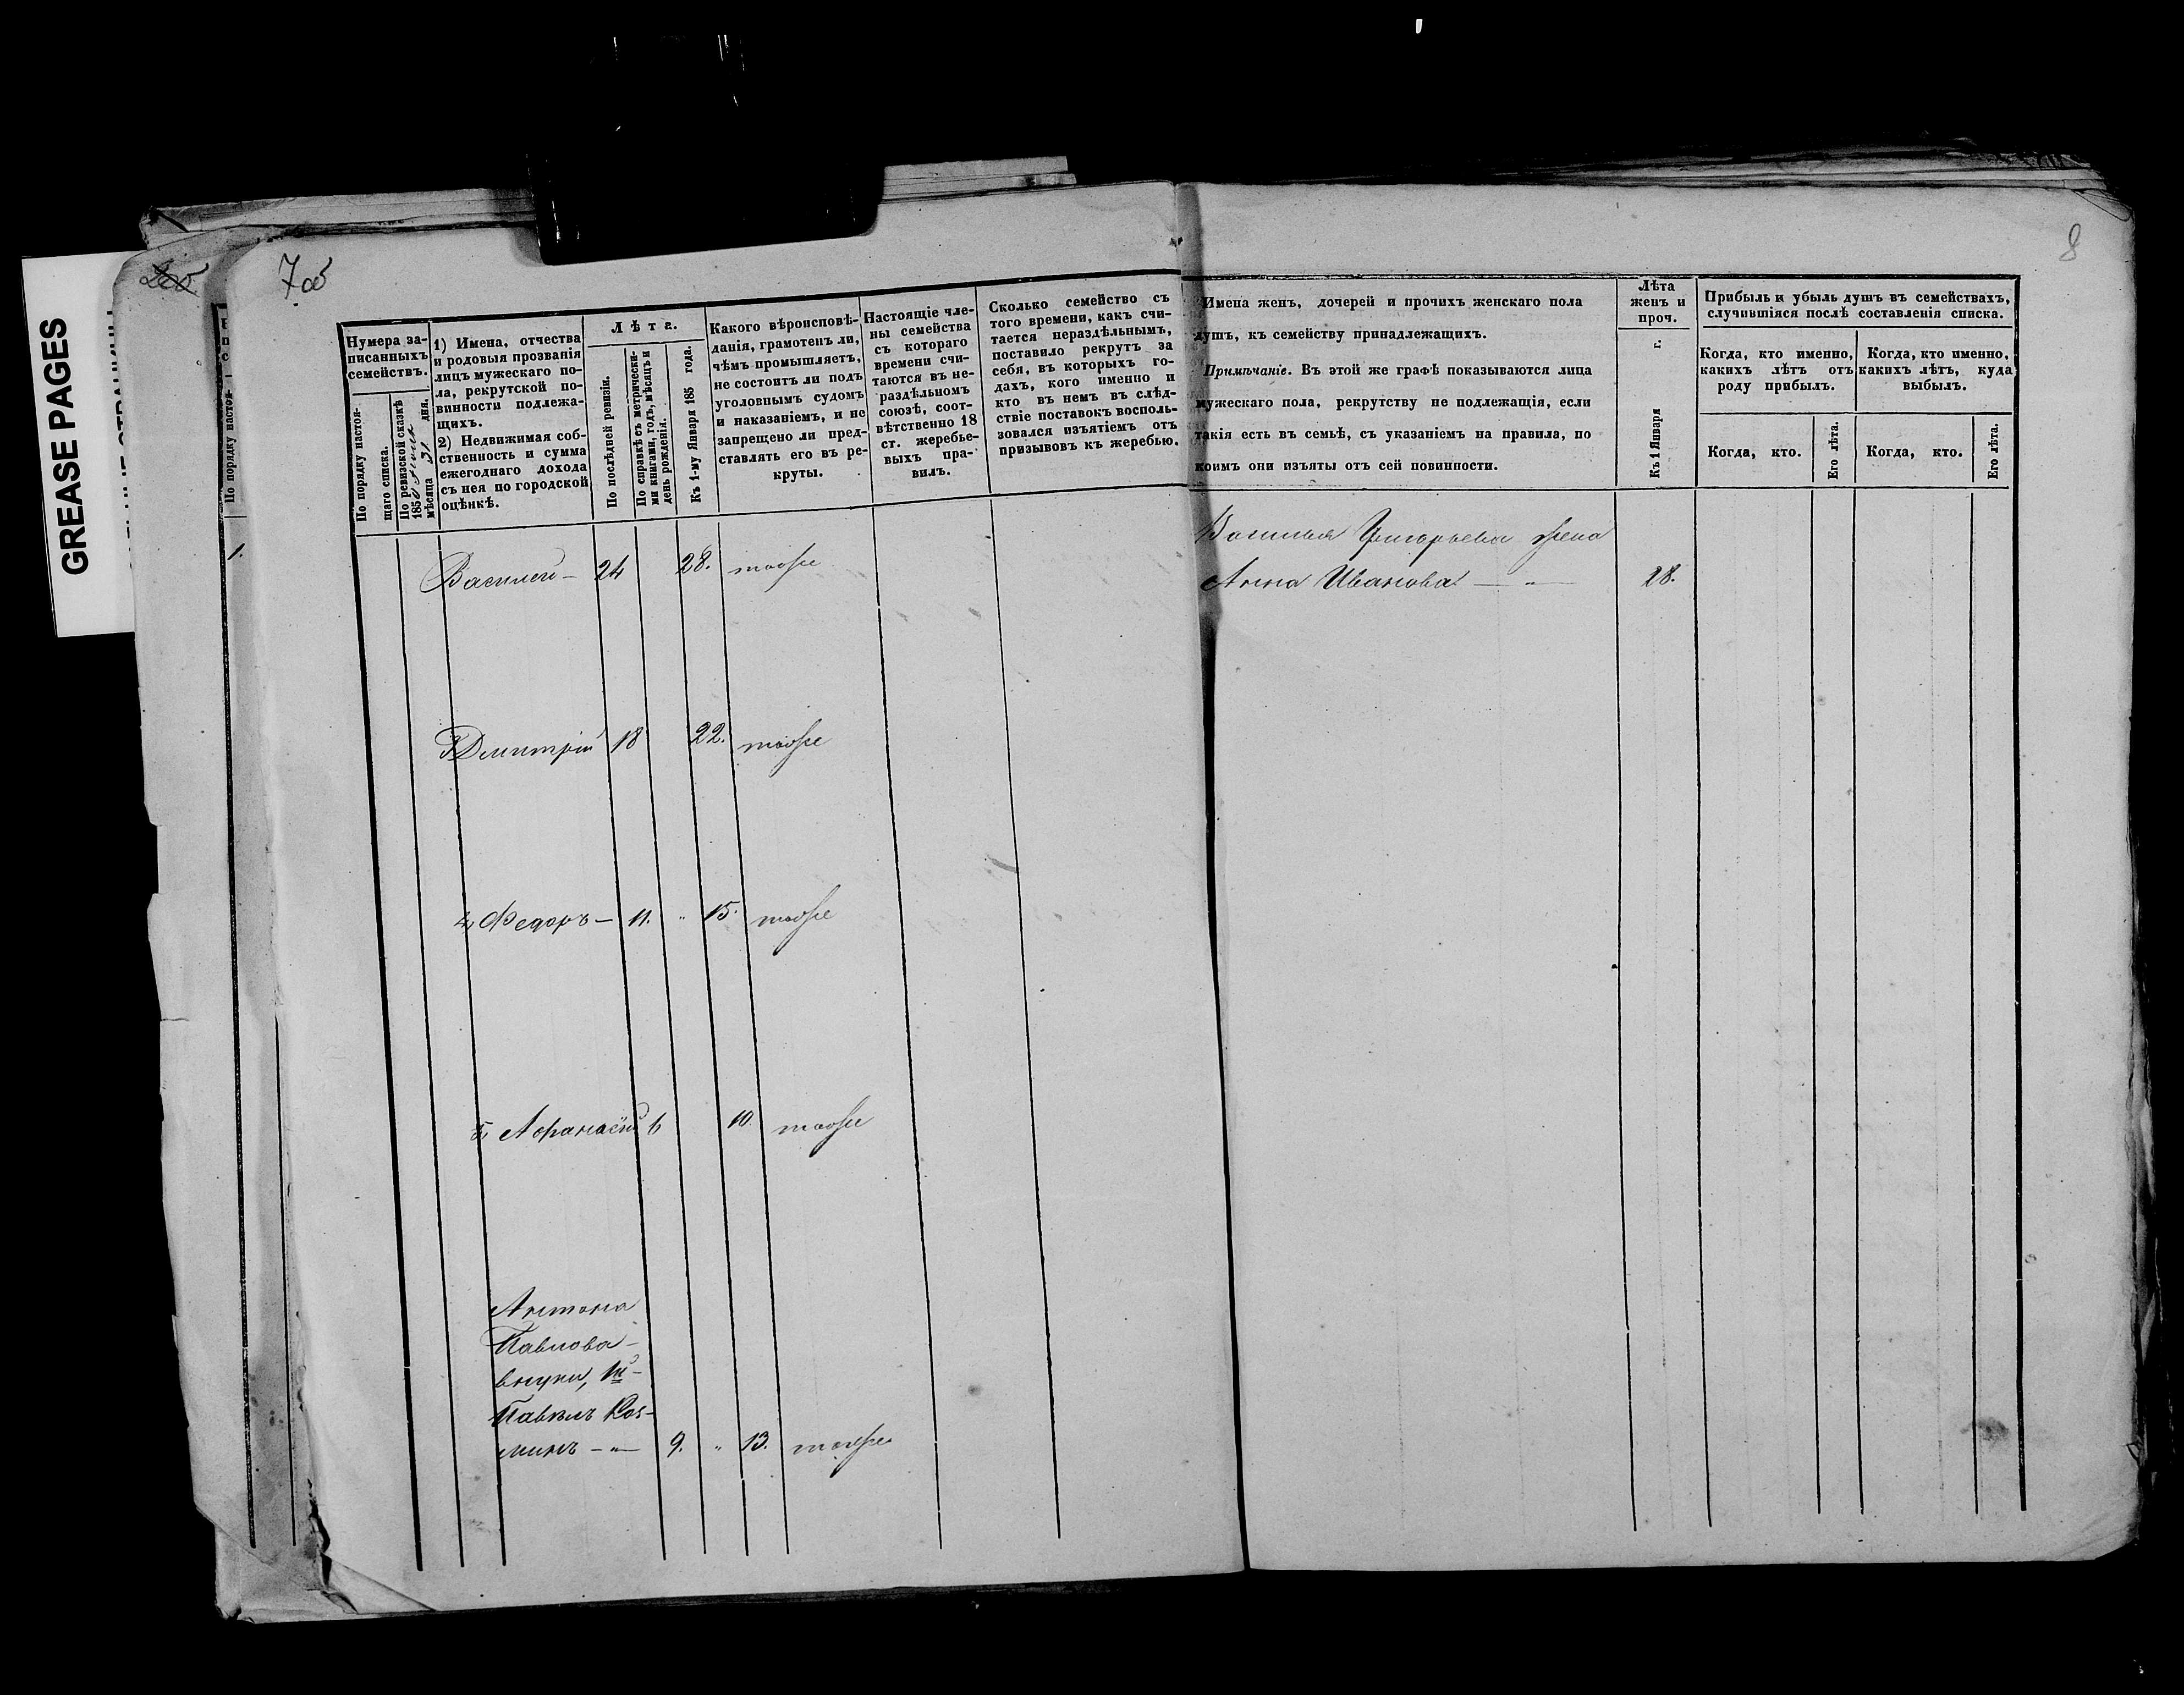 GREASE PAGES
7об
8
Нумера за-
писанныхъ
семействъ.
По порядку настоя-
щаго списка.
По ревизской сказкѣ
185
мѣсяца 31 дня.
1) Имена, отчества
и родовыя прозванія
лицъ мужескаго по-
ла, рекрутской по-
винности подлежа-
щихъ.
2) Недвижимая соб-
ственность и сумма
ежегоднаго дохода
съ нея по городской
оцѣнкѣ.
Лѣта.
По послѣдней ревизіи.
По справкѣ съ метрически-
ми книгами, годъ, мѣсяцъ и
день рожденія.
Къ 1-му Января 185 года.
Какого вѣроисповѣ-
данія, грамотенъ ли,
чѣмъ промышляетъ,
не состоитъ ли подъ
уголовнымъ судомъ
и наказаніемъ, и не
запрещено ли пред-
ставлять его въ ре-
круты.
Настоящіе чле-
ны семейства
съ котораго
времени счи-
таются въ не-
раздѣльномъ
союзѣ, соот-
вѣтственно 18
ст. жеребье-
выхъ пра-
вилъ.
Сколько семейство съ
того времени, какъ счи-
тается нераздѣльнымъ,
поставило рекрутъ за
себя, въ которыхъ го-
дахъ, кого именно и
кто въ немъ въ слѣд-
ствіе поставокъ восполь-
зовался изъятіемъ отъ
призывовъ къ жеребью.
Имена женъ, дочерей и прочихъ женскаго пола
душъ, къ семейству принадлежащихъ.
Примѣчаніе. Въ этой же графѣ показываются лица
мужескаго пола, рекрутству не подлежащія, если
такія есть въ семьѣ, съ указаніемъ на правила, по
коимъ они изъяты отъ сей повинности.
Лѣта
женъ и
проч.
Къ 1 Января г.
Прибыль и убыль душъ въ семействахъ,
случившіяся послѣ составленія списка.
Когда, кто именно,
какихъ лѣтъ отъ
роду прибылъ.
Когда, кто именно,
какихъ лѣтъ, куда
выбылъ.
Когда, кто.
Его лѣта.
Когда, кто.
Его лѣта.
1.
Василей — 24 28. тоже
Василья Григорьева жена
Анна Иванова — 〃 — 28.
3 Дмитрій 18 22. тоже
4, Федоръ — 11. 〃 15. тоже
5, Афанасій 6 10. тоже
Антона
Павлова —
внуки, 1й —
Павелъ Коз-
минъ — 〃 — 9. 〃 13. тоже